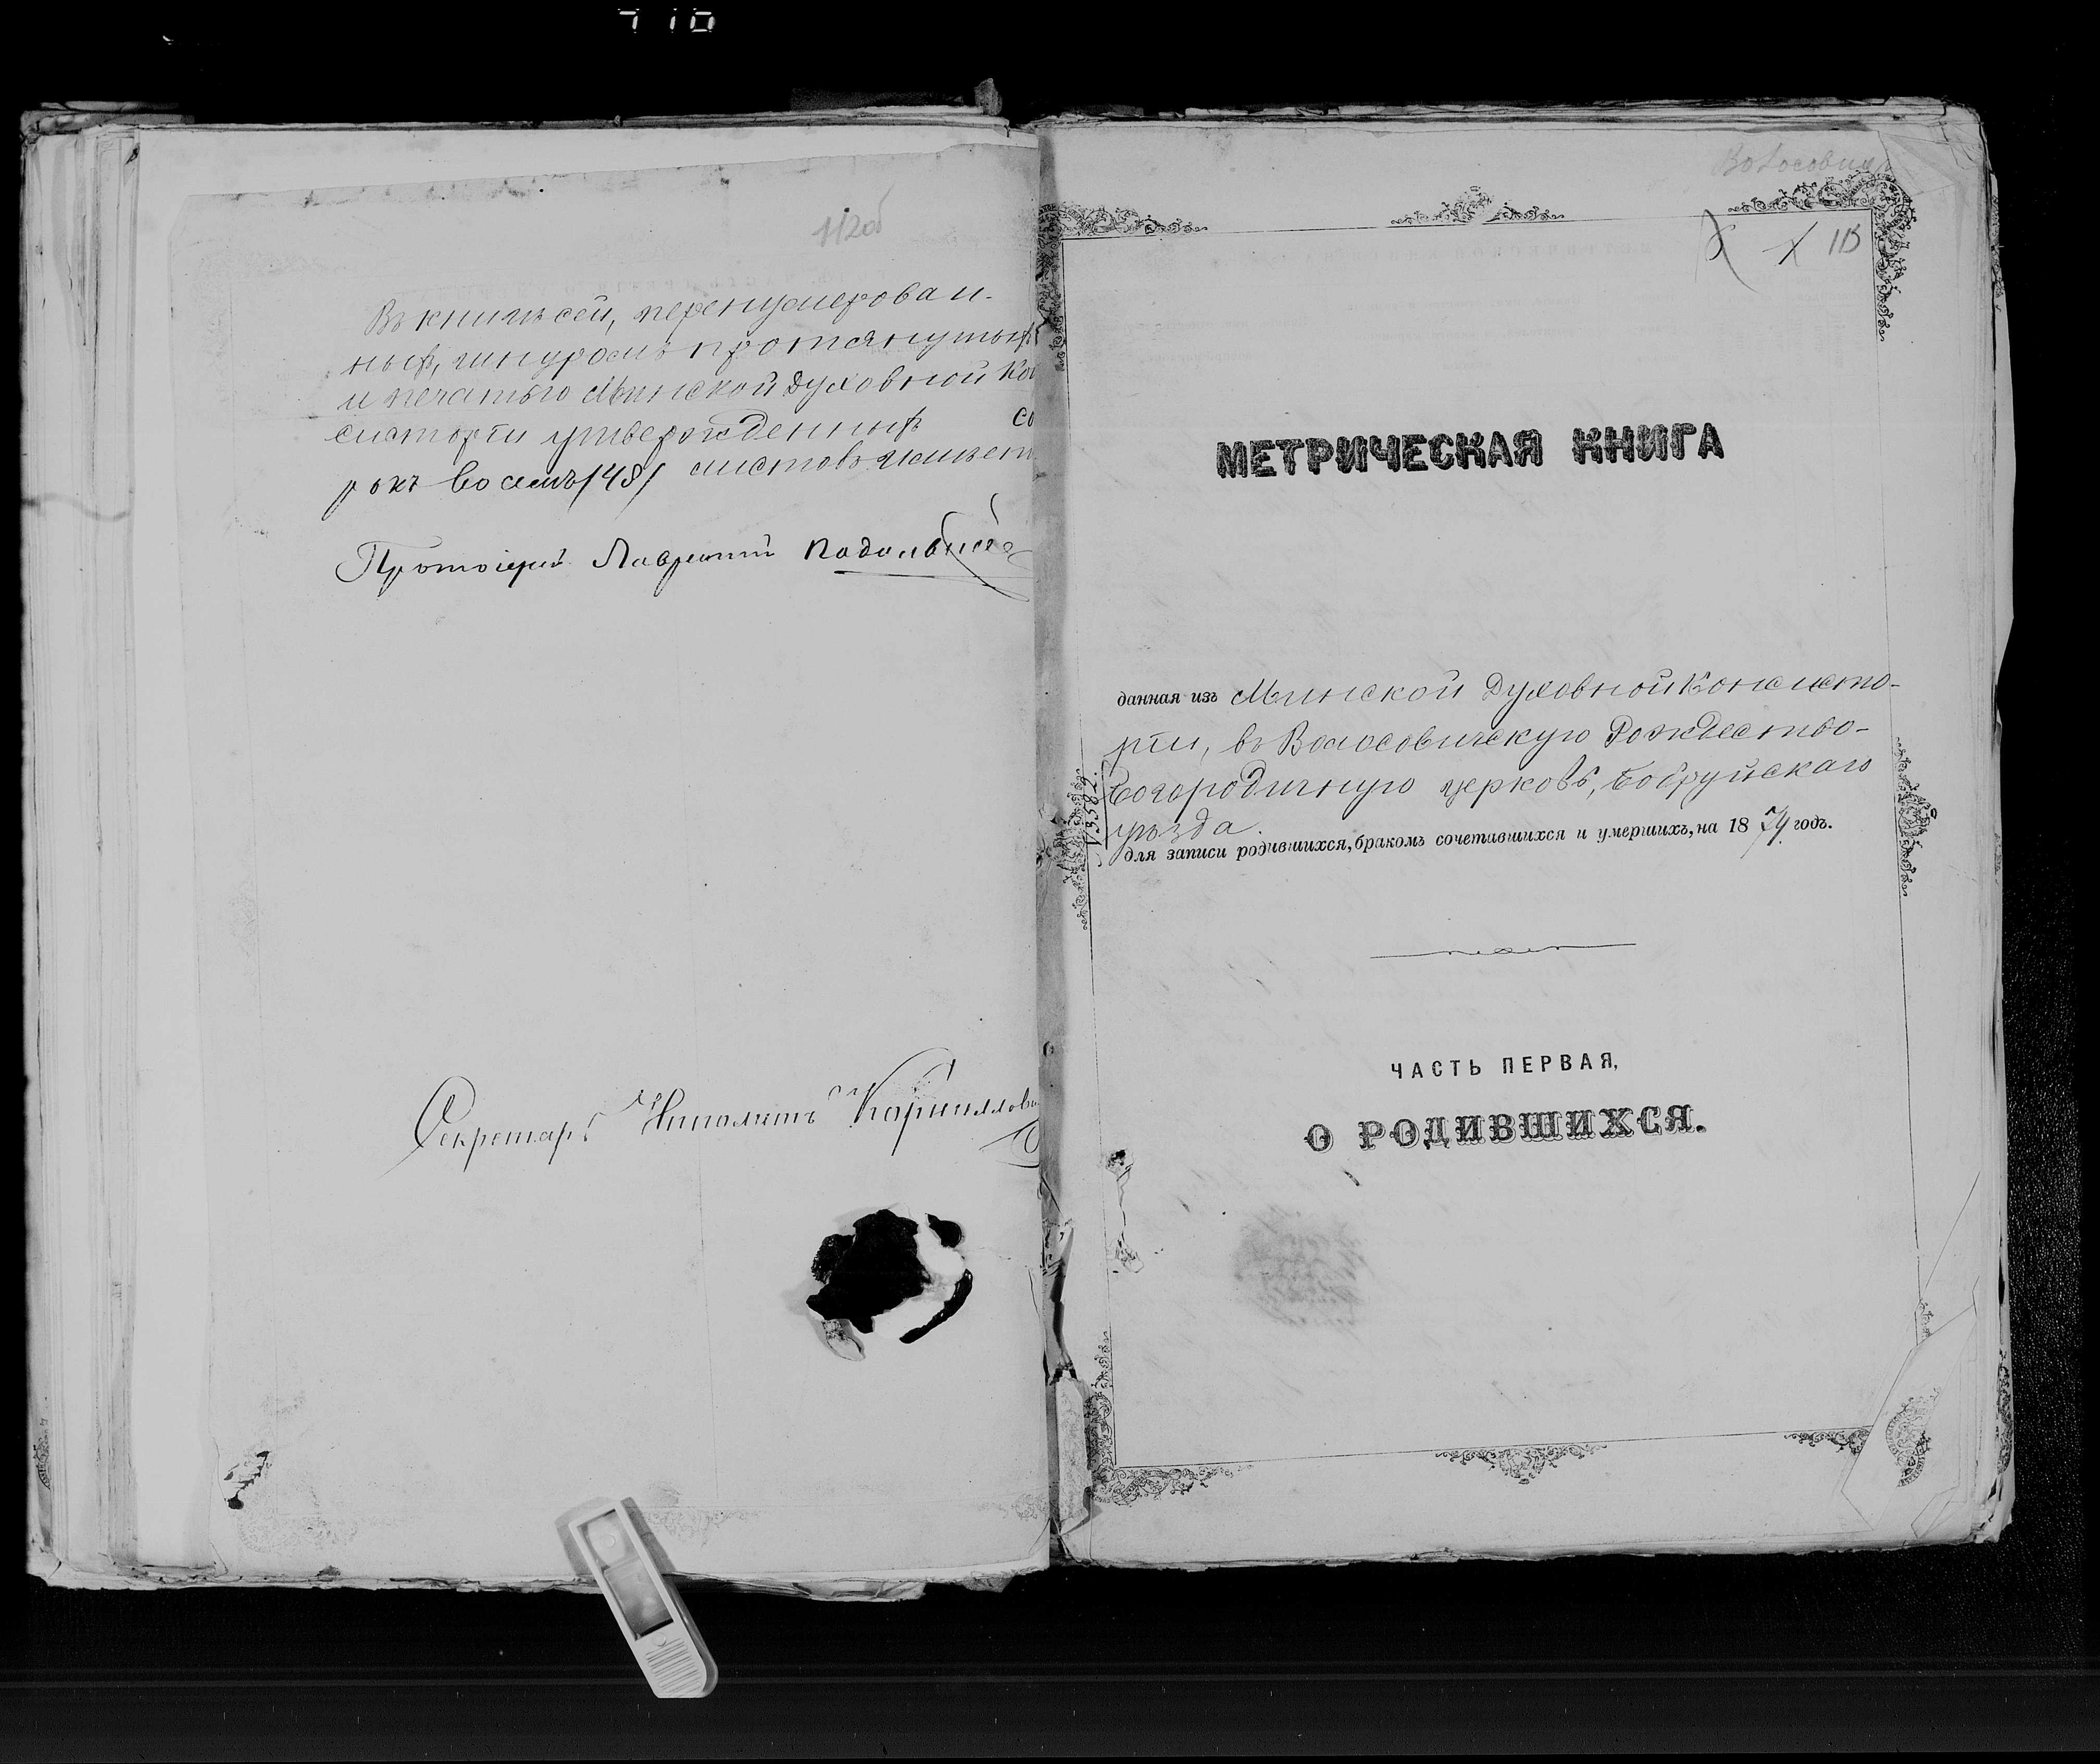 710
112об
Въ книгѣ сей, перенумерован-
ныхъ, шнуромъ протянутыхъ
и печатью Минской Духовной Кон
систоріи утвержденныхъ со
рокъ восемь /48/ листовъ
Протоіерей Лаврентій
Секретарь Ипполитъ
Волосовичи
113
МЕТРИЧЕСКАЯ КНИГА
данная изъ Минской Духовной Консисто-
ріи, въ Волосовичскую Рождество-
Богородичную церковь, Бобруйскаго
уѣзда.
для записи родившихся, бракомъ сочетавшихся и умершихъ, на 1874 годъ.
ЧАСТЬ ПЕРВАЯ,
О РОДИВШИХСЯ.